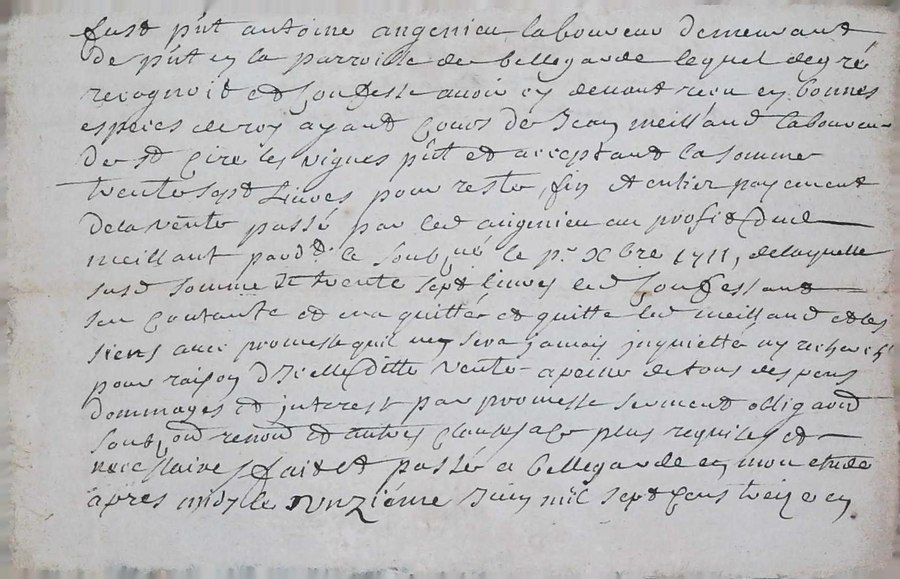 fust pnt antoine angenieu laboureur demeurant
de pnt en la parroisse de bellegarde lequel de gré
recognoit et confesse avoir cy devant receu en bonnes
especes de roy ayant cours de Jean meilland laboureur
de st Cire les vignes pnt et acceptant la somme
trente sept Livres pour reste fin et entier payement
de la vente passé par led angenieu au profit dud
meillant pard. le soubné le pr Xbre 1711, de laquelle
susd somme de trente sept livres led Confessant
sen contante et en a quitté et quitte led meilland et les
siens avec promesse quil nen sera jamais inquietté ny recherché
pour raison d'Icelle ditte vente a peine de tous despens
dommages et interest par promesse serment obligaon
soub, on renon et autres clauses a ce plus requises et
necessaire fait et passé a bellegarde en mon etude
apres midy le onzième Juin mil sept cens treize en